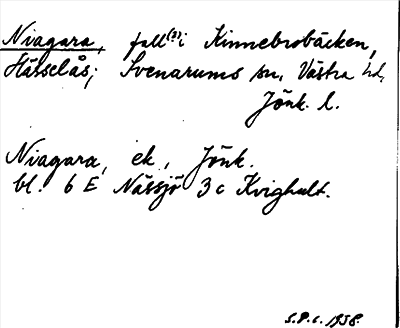 Niagara, fall(?) i Kinnebrobäcken,
Hässelås; Svenarums sn, Västra hd,
Jönk. l.
Niagara, ek., Jönk.
bl. 6 E Nässjö 3 c Kvighult.
S.P.c. 1958.